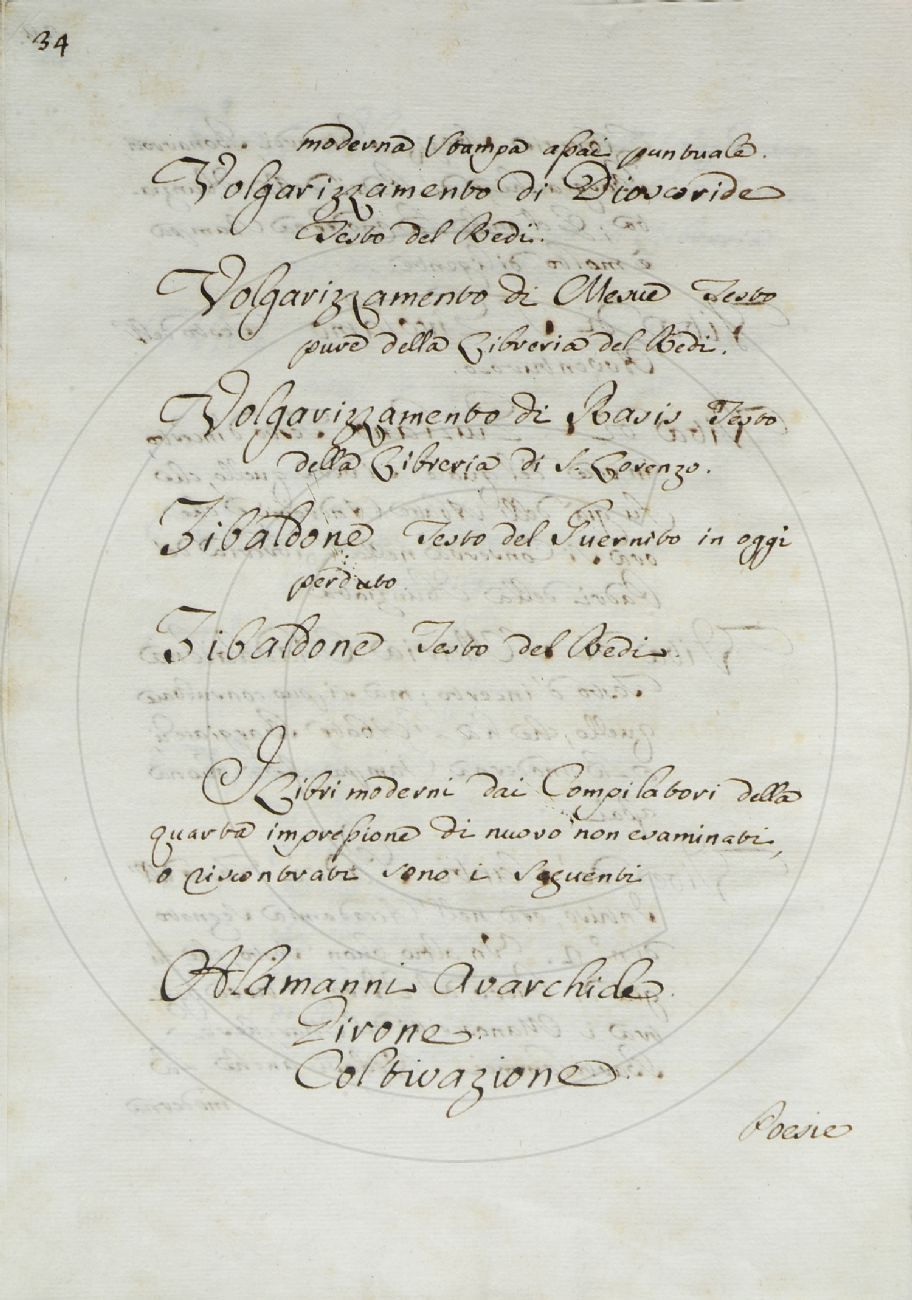 34
moderna Stampa assai puntuale.
Volgarizzamento di Dioscoride
Testo del Redi.
Volgarizzamento di Mesue Testo
pure della Libreria del Redi.
Volgarizzamento di Rasis Testo
della Libreria di S. Lorenzo.
Zibaldone Testo del Guernito in oggi
perduto
Zibaldone Testo del Redi.
I Libri moderni dai Compilatori della
quarta impressione di nuovo non esaminati,
o riscontrati sono i seguenti
Alamanni Avarchide
Girone
Coltivazione
Poesie